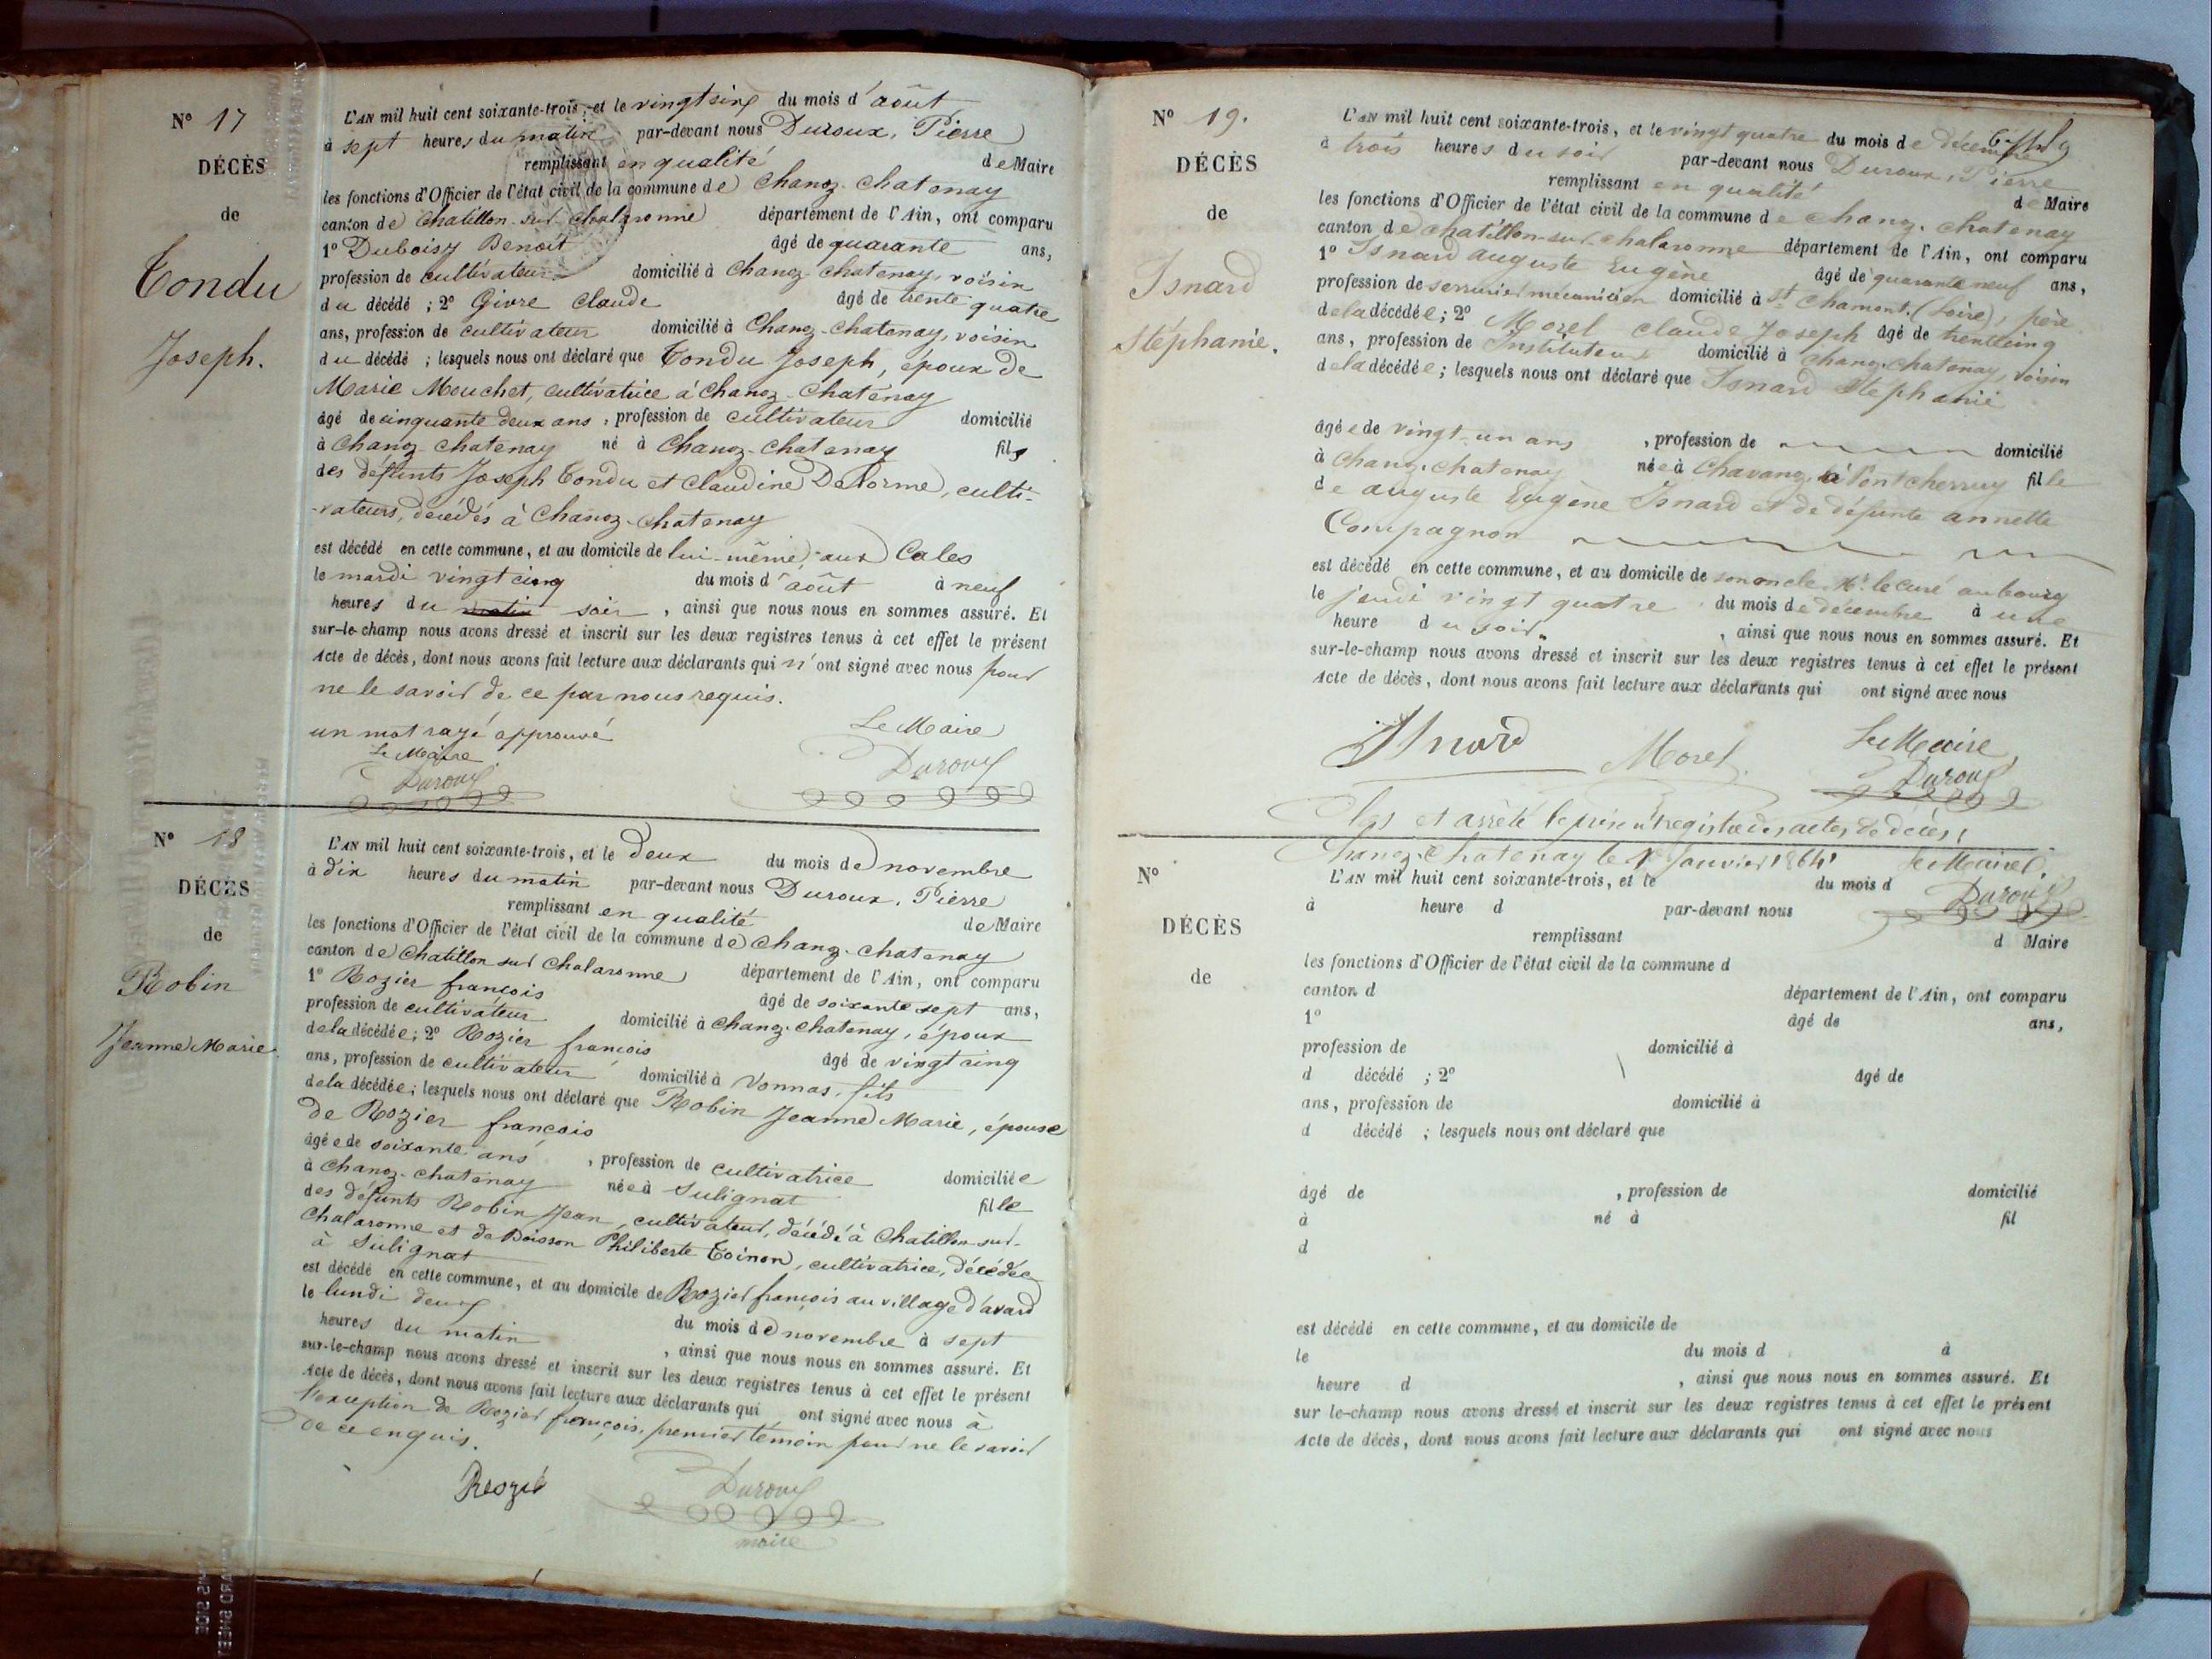 N° 17
DÉCÈS
de
Tondu
Joseph.
L'AN mil huit cent soixante-trois, et le vingt six du mois d'août
à sept heures du matin par-devant nous Duroux, Pierre
remplissant en qualité de Maire
les fonctions d'Officier de l'état civil de la commune de Chanoz-Chatenay
canton de Chatillon-sur-Chalaronne département de l'Ain, ont comparu
1° Duboisy Benoît âgé de quarante ans,
profession de cultivateur domicilié à Chanoz-Chatenay, voisin
du décédé ; 2° Givre Claude âgé de trente quatre
ans, profession de cultivateur domicilié à Chanoz-Chatenay, voisin
du décédé ; lesquels nous ont déclaré que Tondu Joseph, époux de
Marie Mouchet, cultivatrice à Chanoz-Chatenay
âgé de cinquante deux ans, profession de cultivateur domicilié
à Chanoz-Chatenay né à Chanoz-Chatenay fils
des défunts Joseph Tondu et Claudine Delorme, culti-
-vateurs, décédés à Chanoz-Chatenay
est décédé en cette commune, et au domicile de lui-même, aux Cales
le mardi vingt cinq du mois d'août à neuf
heures du matin soir, ainsi que nous nous en sommes assuré. Et
sur-le-champ nous avons dressé et inscrit sur les deux registres tenus à cet effet le présent
Acte de décès, dont nous avons fait lecture aux déclarants qui n'ont signé avec nous pour
ne le savoir de ce par nous requis.
un mot rayé approuvé
Le Maire Le Maire
Duroux Duroux
N° 18
DÉCÈS
de
Robin
Jeanne Marie
L'AN mil huit cent soixante-trois, et le deux du mois de novembre
à dix heures du matin par-devant nous Duroux, Pierre
remplissant en qualité de Maire
les fonctions d'Officier de l'état civil de la commune de Chanoz-Chatenay
canton de Chatillon sur Chalaronne département de l'Ain, ont comparu
1° Rozier françois âgé de soixante sept ans,
profession de cultivateur domicilié à Chanoz-Chatenay, époux
de la décédée; 2° Rozier françois âgé de vingt cinq
ans, profession de cultivateur domicilié à Vonnas, fils
de la décédée; lesquels nous ont déclaré que Robin Jeanne Marie, épouse
de Rozier françois
âgée de soixante ans, profession de cultivatrice domiciliée
à Chanoz-Chatenay née à Sulignat fille
des défunts Robin Jean, cultivateur, décédé à Chatillon-sur-
Chalaronne et de Boisson Philiberte Toinon, cultivatrice, décédée
à Sulignat
est décédé en cette commune, et au domicile de Rozier françois au village d'avard
le lundi deux du mois de novembre à sept
heures du matin, ainsi que nous nous en sommes assuré. Et
sur-le-champ nous avons dressé et inscrit sur les deux registres tenus à cet effet le présent
Acte de décès, dont nous avons fait lecture aux déclarants qui ont signé avec nous à
l'exception de Rozier françois, premier témoin pour ne le savoir
de ce enquis.
Rozié Duroux
maire
N° 19.
DÉCÈS
de
Isnard
Stéphanie.
L'AN mil huit cent soixante-trois, et le vingt quatre du mois de décembre
à trois heures du soir par-devant nous Duroux, Pierre
remplissant en qualité de Maire
les fonctions d'Officier de l'état civil de la commune de Chanoz-Chatenay
canton de Chatillon-sur-Chalaronne département de l'Ain, ont comparu
1° Isnard auguste Eugène âgé de quarante neuf ans,
profession de serrurier mécanicien domicilié à St Chamont (Loire), père
de la décédée; 2° Morel Claude Joseph âgé de trente cinq
ans, profession de Instituteur domicilié à Chanoz-Chatenay, voisin
de la décédée; lesquels nous ont déclaré que Isnard Stéphanie
âgée de vingt-un ans, profession de domicilié
à Chanoz-Chatenay née à Chavanoz à Pontcherruy fille
de auguste Eugène Isnard et de défunte annette
Compagnon
est décédé en cette commune, et au domicile de son oncle Mr le curé au bourg
le jeudi vingt quatre du mois de décembre à une
heure du soir, ainsi que nous nous en sommes assuré. Et
sur-le-champ nous avons dressé et inscrit sur les deux registres tenus à cet effet le présent
Acte de décès, dont nous avons fait lecture aux déclarants qui ont signé avec nous
Isnard Morel Le Maire
Duroux
Clos et arrêté le présent registre des actes de décès,
Chanoz-Chatenay le 1er Janvier 1864 Le Maire
Duroux
N°
DÉCÈS
de
L'AN mil huit cent soixante-trois, et le du mois d
à heure d par-devant nous
remplissant d Maire
les fonctions d'Officier de l'état civil de la commune d
canton d département de l'Ain, ont comparu
1° âgé de ans,
profession de domicilié à
d décédé ; 2° âgé de
ans, profession de domicilié à
d décédé ; lesquels nous ont déclaré que
âgé de , profession de domicilié
à né à fil
d
est décédé en cette commune, et au domicile de
le du mois d à
heure d , ainsi que nous nous en sommes assuré. Et
sur le-champ nous avons dressé et inscrit sur les deux registres tenus à cet effet le présent
Acte de décès, dont nous avons fait lecture aux déclarants qui ont signé avec nous